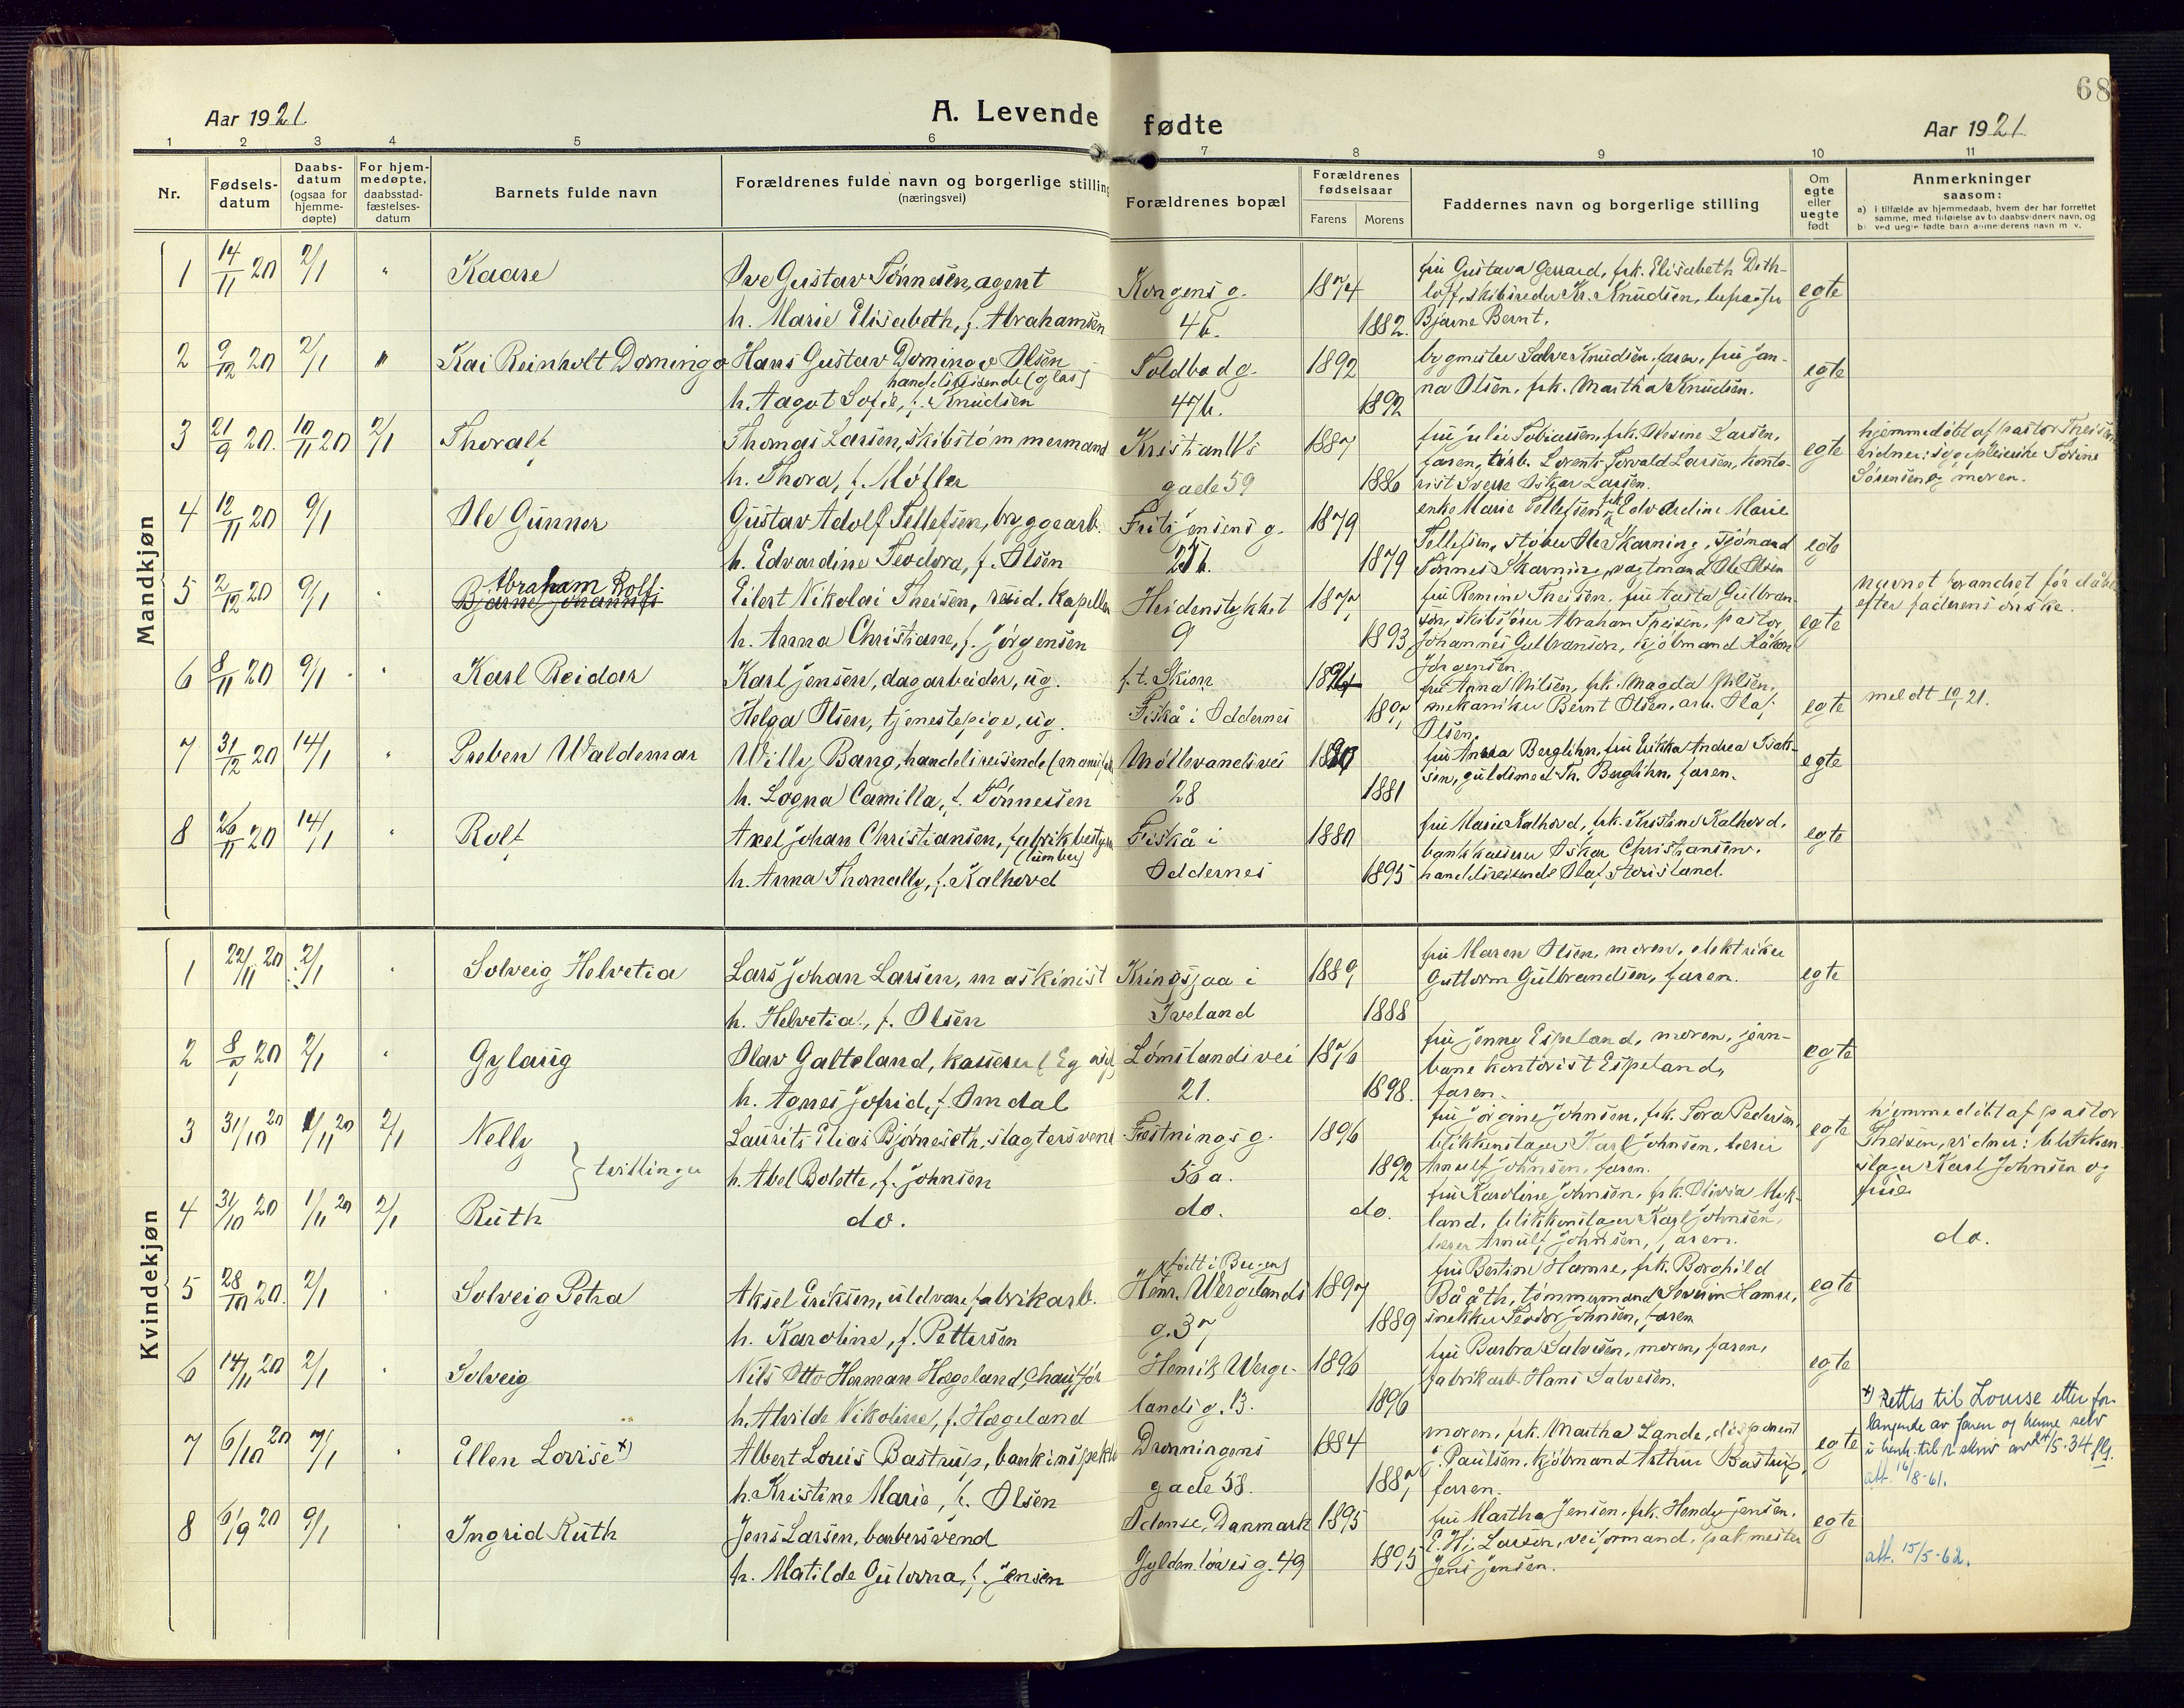 68
Aar 1921
A. Levende fødte
Aar 1921
1 2 3 4 5 6 7 8 9 10 11
Nr.
Fødsels-datum
Daabs-datum (ogsaa for hjemme-døpte)
For hjem-medøpte, daabsstad-fæstelses-datum
Barnets fulde navn
Forældrenes fulde navn og borgerlige stilling (næringsvei)
Forældrenes bopæl
Forældrenes fødselsaar
Farens Morens
Faddernes navn og borgerlige stilling
Om egte eller uegte født
Anmerkninger saasom:
a) i tilfælde av hjemmedaab, hvem der har forrettet samme, med tilføielse av to daabsvidners navn, og
b) ved uegte fødte barn anmelderens navn m. v.
Mandkjøn
1 14/11 20 2/1 " Kaare Ove Gustav Tønnesen, agent Kongensg. 1874 fru Gustava Gerrard, frk. Elisabeth Dith- egte
h. Marie Elisabeth, f. Abrahamsen 46. 1882. loff, skibsreder Kr. Knudsen,
Bjarne Bernt.
2 9/12 20 2/1 " Kai Reinholt Domingo Hans Gustav Domingo Olsen Toldbodg. 1892 bygmester Salve Knudsen, faren, fru Jan- egte
handelsreisende (glas)
h. Aagot Sofie, f. Knudsen 47b. 1892 na Olsen, frk. Martha Knudsen.
3 21/9 20. 10/11 20 2/1 Thoralf Thomas Larsen, skibstømmermand Kristian IVs 1887 fru Julie Tobiassen, frk. Olesine Larsen, egte hjemmedøbt af pastor Theisen
h. Thora, f. Møller gade 59 1886 faren, Lorents Torvald Larsen, konto- vidner: sygepleierske Torine
rist Sverre Oskar Larsen. Sørensen og moren.
4 12/11 20 9/1 Ole Gunnar Gustav Adolf Tellefsen, bryggearb. Frits Jensens g. 1879 enke Marie Tellefsen, frk. Edvardine Marie egte
h. Edvardine Teodora, f. Olsen 1879 Tellefsen, støber Ole Skarning, sjømand
Tønnes Skarning, vagtmand Ole Olsen
5 2/12 20 9/1 " Abraham Rolf Bjarne Johannes Eilert Nikolai Theisen, resid. kapellan Heidenstykket 1877 fru Remine Theisen, fru Aasta Gulbran- egte navnet forandret før dåben
h. Anna Christiane, f. Jørgensen 9 1893 son, skibsfører Abraham Theisen, pastor efter faderens ønske.
Johannes Gulbranson, kjøbmand Håkon
Jørgensen.
6 8/11 20 9/1 " Karl Reidar Karl Jensen, dagarbeider, ug. f.t. Skien fru Anna Nilsen, frk. Magda Nilsen, egte meldt 10/1 21.
Helga Olsen, tjenestepige, ug. Fiskå i Oddernes 1897 mekaniker Bernt Olsen, arb. Olaf
Olsen.
7 31/12 20 14/1 " Preben Waldemar Willy Bang, handelsreisende Møllevandsvei fru Anna Berglihn, fru Erikka Andrea Isak- egte
h. Logna Camilla, f. Tønnessen 28 1881 sen, guldsmed Th. Berglihn, faren.
8 26/11 20 14/1 " Rolf Axel Johan Christiansen, fabrikbestyrer Fiskå i 1880 fru Marie Kalhovd, frk. Kristine Kalhovd, egte
h. Anna Thomally, f. Kalhovd Oddernes 1895 bankkasserer Oskar Christiansen,
handelsreisende Olaf
Kvindekjøn
1 22/11 20 2/1 " Solveig Helvetia Lars Johan Larsen, maskinist Kringsjaa i 1889 fru Maren Olsen, moren, elektriker egte
h. Helvetia, f. Olsen Iveland 1888 Guttorm Gulbrandsen, faren.
2 20 2/1 " Gylaug Olav Galteland, kasserer Lømslandsvei 1876 fru Jenny Espeland, moren, jern- egte
h. Agnes Jofrid, f. Omdal 21. 1898. banekontorist Espeland,
faren.
3 31/10 20 1/11 20 2/1 Nelly Laurits Elias Bjørneseth, slagtersvend Festningsg. 1896 fru Jørgine Johnsen, frk. Tora Pedersen, egte hjemmedøbt af pastor
tvillinger h. Abel Bolette, f. Johnsen 56 a. 1892 blikkenslager Karl Johnsen, lærer Theisen, vidner: blikken
Arnulf Johnsen, faren. slager Karl Johnsen og
frue
4 31/10 20 1/11 20 2/1 Ruth do. do. do. fru Karoline Johnsen, frk. Olivia Myk-
land, blikkenslager Karl Johnsen,
lærer Arnulf Johnsen, faren. do.
5 28/10 20. 2/1 " Solveig Petra Aksel Eriksen, uldvarefabrikarb. (født i Bergen) Henr. Wergelands 1897 fru Bertine Hamre, frk. Borghild egte
h. Karoline, f. Pettersen g. 37 1889 Bååth, tømmermand Severin Hamre,
snekker Teodor Johnsen, faren
6 14/11 20 2/1 " Solveig Nils Otto Herman Hægeland, chauffør Henrik Werge- 1896 fru Barbra Salvesen, moren, faren, egte
h. Alvilde Nikoline, f. Hægeland lands g. 13. 1896 fabrikarb. Hans Salvesen.
7 6/10 20 7/1 " Ellen Lovise x) Albert Louis Bastrup, bankinspektør Dronningens 1884 moren, frk. Martha Lande, disponent egte x) Rettes til Louise etter for-
h. Kristine Marie, f. Olsen gade 58. 1887 J. Paulsen, kjøbmand Arthur Bastrup, langende av faren og henne selv
faren. i henh. til r.skriv av 24/5-34 flg.
att. 16/8-61.
8 6/9 20 9/1 " Ingrid Ruth Jens Larsen, barbersvend Odense, Danmark 1895 fru Martha Jensen, frk. Jensen, egte
h. Matilde Gulovna, f. Jensen Gyldenløves g. 49 1895 Larsen, veiformand, pakmester att. 15/5-62.
Jens Jensen.